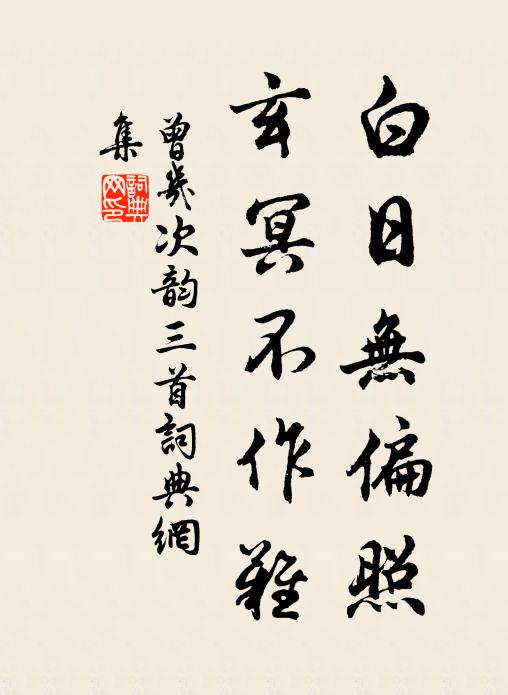 白日無偏照
玄冥不作難
曾幾次韵三首詞典網
集
詞典網印